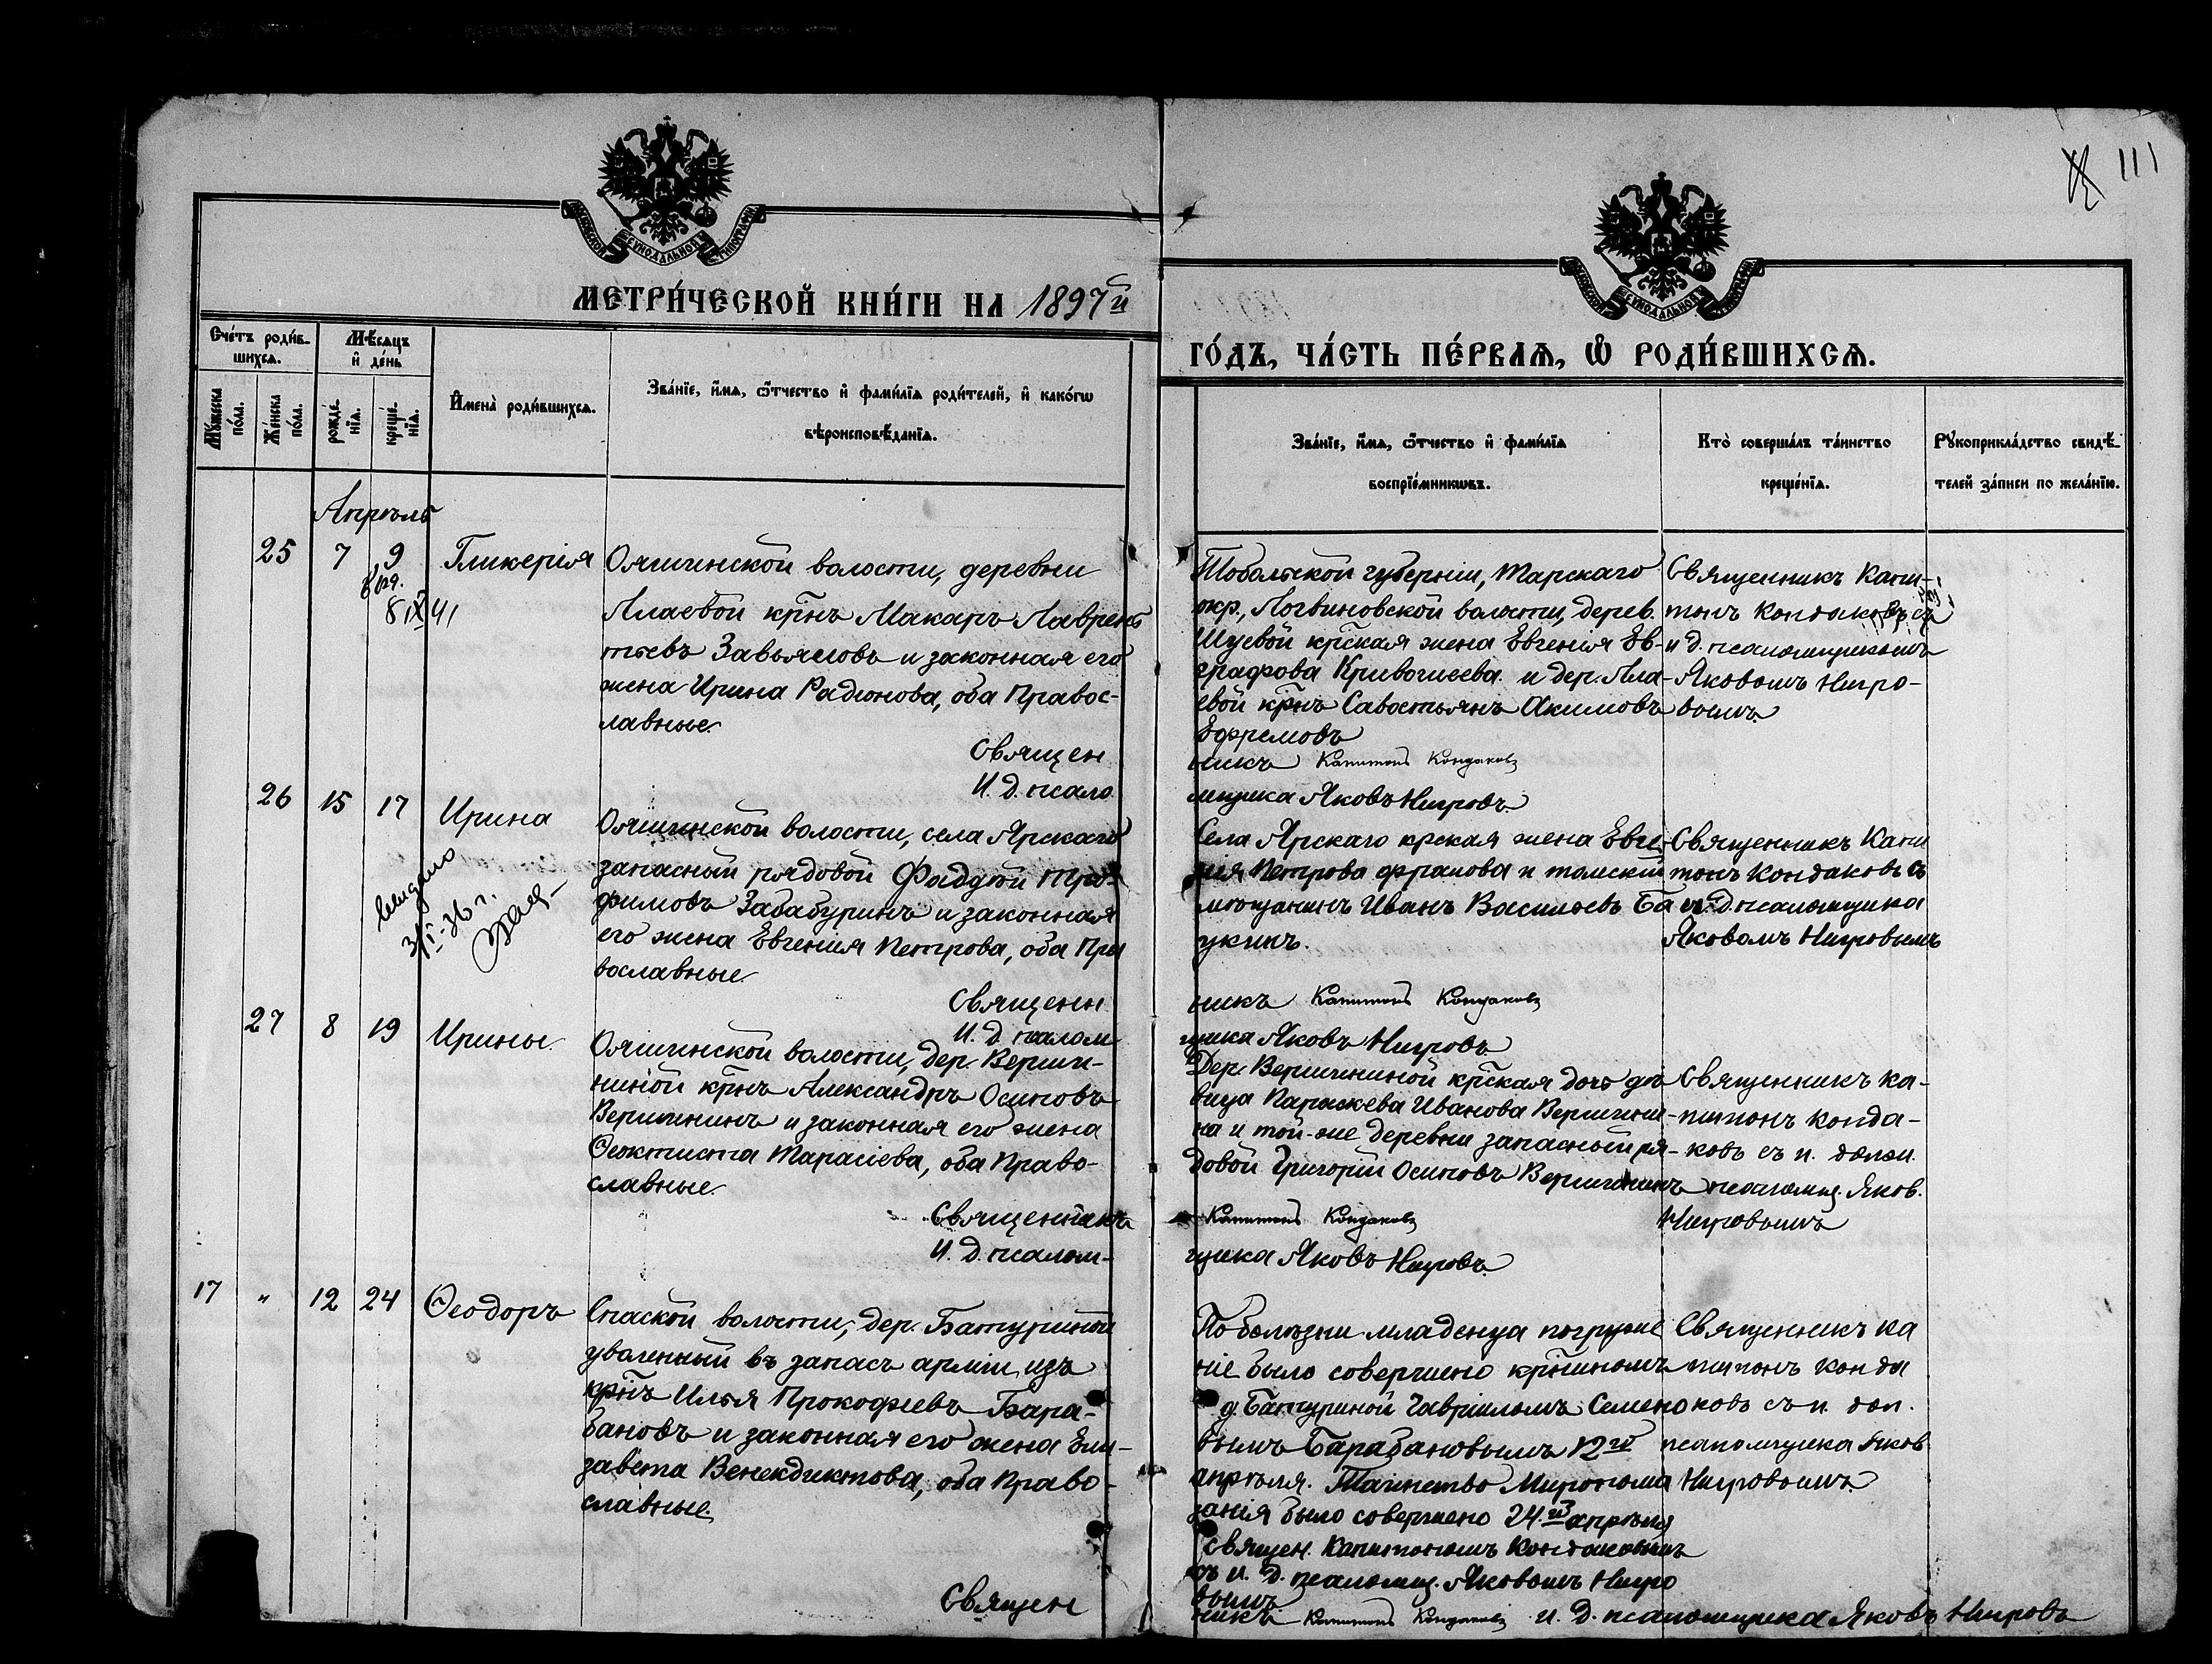 111
МОСКОВСКОЙ СѴНОДАЛЬНОЙ ТИПОГРАФІИ
МОСКОВСКОЙ СѴНОДАЛЬНОЙ ТИПОГРАФІИ
МЕТРИ́ЧЕСКОЙ КНИ́ГИ НА 1897й
ГО́ДЪ, ЧА́СТЬ ПЕ́РВАѦ, Ѡ҆ РОДИ́ВШИХСѦ.
Сче́тъ роди́в-
шихсѧ.
Мѣ́сѧцъ
и҆ де́нь
Мꙋ́жеска
по́ла.
Же́нска
по́ла.
рожде́-
нїѧ.
креще́-
нїѧ.
И҆мена̀ роди́вшихсѧ.
Зва́нїе, и҆́мѧ, ѻ҆́тчество и҆ фами́лїѧ роди́телей, и҆ како́гѡ
вѣроисповѣ́данїѧ.
Зва́нїе, и҆́мѧ, ѻ҆́тчество и҆ фами́лїѧ
воспрїе́мникѡвъ.
Кто̀ соверша́лъ та́инство
креще́нїѧ.
Рꙋкоприкла́дство свидѣ́-
телей за́писи по жела́нїю.
Апрѣль
25 7 9 Гликерія
8 IX 41
Ояшинской волости, деревни
Алаевой крнъ Макаръ Лаврень
тьевъ Завьяловъ и законная его
жена Ирина Радіонова, оба Правос-
лавные.
Священ
И. д. псало
Тобольской губерніи, Тарскаго
окр, Логвиновской волости, дерев.
Шуевой крская жена Евгенія Ев-
графова Кривошеева и дер. Ала-
евой крнъ Савостьянъ Акимовъ
Ефремовъ
никъ Капитонъ Кондаковъ
мщика Яковъ Нигровъ
Священникъ Капи-
тонъ Кондаковъ съ
и д. псаломщикомъ
Яковомъ Нигро-
вымъ
26 15 17 Ирина
Выдано
36 г.
Ояшинской волости, села Ярскаго
запасный рядовой Фаддѣй Тро-
фимовъ Забабуринъ и законная
его жена Евгенія Петрова, оба Пра
вославные.
Священн
И. д. псалом
Села Ярскаго крская жена Евге
нія Петрова и томскій
мѣщанинъ Иванъ Васильевъ Ба
укинъ.
никъ Капитонъ Кондаковъ
щика Яковъ Нигровъ
Священникъ Капи
тонъ Кондаковъ съ
и. д. псаломщика
Яковомъ Нигровымъ
27 8 19 Ирины.
Ояшинской волости, дер. Верши-
ниной крнъ Александръ Осиповъ
Вершининъ и законная его жена
Ѳеоктиста Тарасіева, оба Право-
славные.
Священникъ
И. д. псалом-
Дер. Вершининой крская дочь дѣ
вица Параскева Иванова Вершини-
на и той-же деревни запасный ря-
довой Григорій Осиповъ Вершининъ
Капитонъ Кондаковъ
щика Яковъ Нигровъ
Священникъ Ка-
питонъ Конда-
ковъ съ и. долж.
псаломщ. Яков.
Нигровымъ
17 " 12 24 Ѳеодоръ
Спаской волости, дер. Батуриной
уволенный въ запасъ арміи изъ
крнъ Илья Прокофьевъ Бара-
бановъ и законная его жена Ели-
завета Венедиктова, оба Право-
славные.
Священ
По болѣзни младенца погруже
ніе было совершено крниномъ
д. Батуриной Гавріиломъ Семено
вымъ Барабановымъ 12го
апрѣля. Таинство Миропома
занія было совершено 24го апрѣля
Священ. Капитономъ Кондаковымъ
съ и. д. псаломщ. Яковомъ Нигро
вымъ
никъ Капитонъ Кондаковъ и. д. псаломщика Яковъ Нигровъ
Священникъ Ка
питонъ Конда
ковъ съ и. дол.
псаломщика Яков
Нигровымъ.